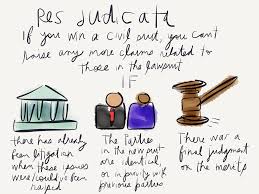 Res Judicata
If you win a civil suit, you can't
raise any more claims related to
those in the lawsuit
IF
there has already
been litigation
when these issues
were/could've been
raised
The Parties
in the new suit
are identical,
or in privity w/
previous parties
There was a
final judgment
on the merits